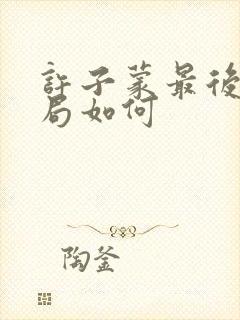 許子蒙最後
局如何
陶釜